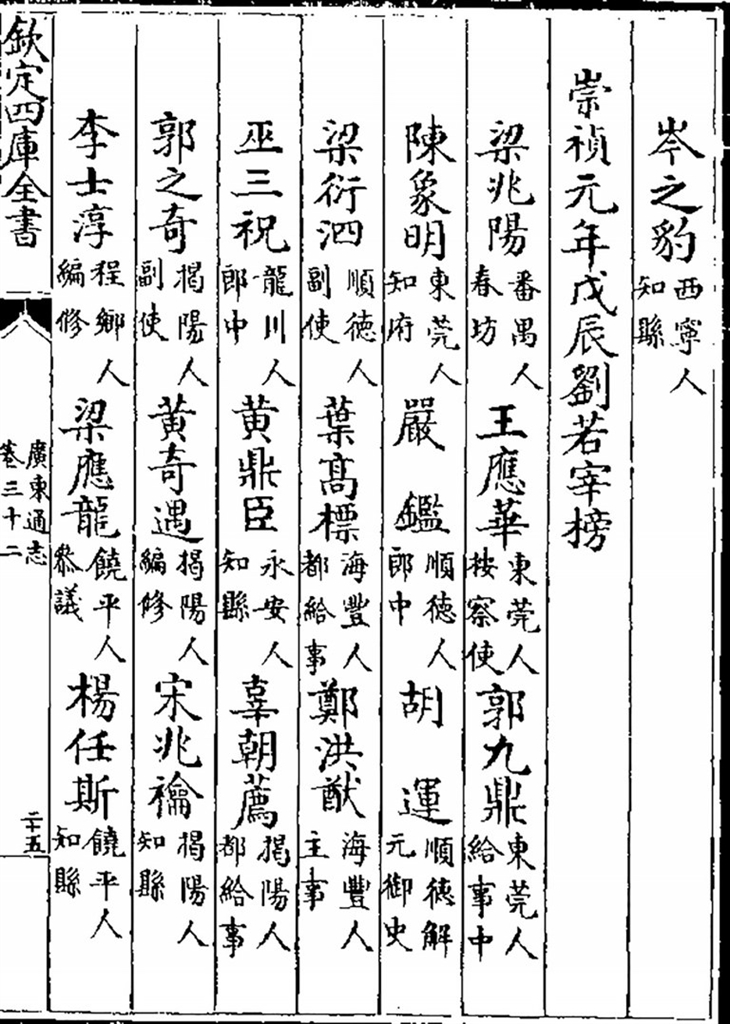 岑之豹西寧人知縣
崇禎元年戊辰劉若宰榜
梁兆陽番禺人春坊 王應華東莞人按察使 郭九鼎東莞人給事中
陳象明東莞人知府 嚴鑑順德人郎中 胡運順德解元御史
梁衍泗順德人副使 葉高標海豐人都給事 鄭洪猷海豐人主事
巫三祝龍川人郎中 黄鼎臣永安人知縣 辜朝薦揭陽人都給事
郭之奇揭陽人副使 黄奇遇揭陽人編修 宋兆禴揭陽人知縣
李士淳程鄉人編修 梁應龍饒平人叅議 楊任斯饒平人知縣
欽定四庫全書
廣東通志
卷三十二
二十五